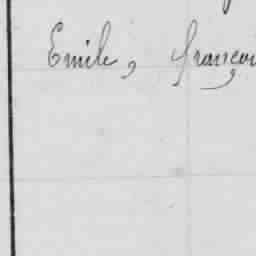 Emile, françoi